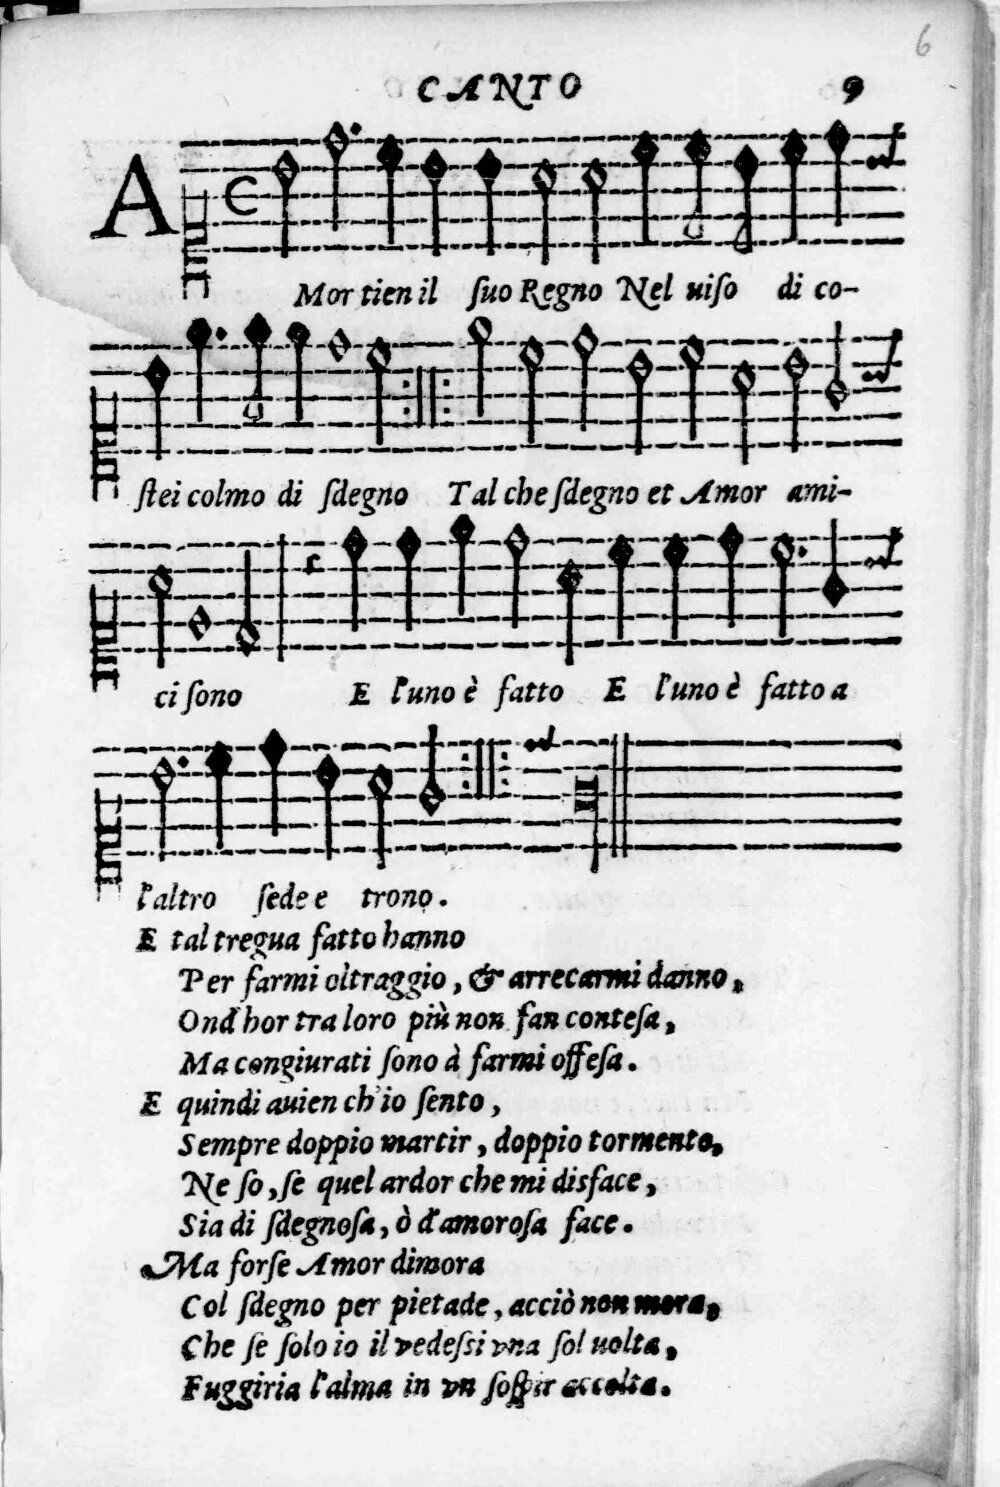 6
CANTO 9
AMor tien il ſuo Regno Nel uiſo di co-
ſtei colmo di ſdegno Tal che ſdegno et Amor ami-
ci ſono E l'uno è fatto E l'uno è fatto a
l'altro ſede e trono.
E tal tregua fatto hanno
Per farmi oltraggio, & arrecarmi danno,
Ond'hor tra loro più non fan conteſa,
Ma congiurati ſono à farmi offeſa.
E quindi auien ch'io ſento,
Sempre doppio martir, doppio tormento,
Ne ſo, ſe quel ardor che mi disface,
Sia di ſdegnoſa, ò d'amoroſa face.
Ma forſe Amor dimora
Col ſdegno per pietade, acciò non mora,
Che ſe ſolo io il vedeſsi vna ſol uolta,
Fuggiria l'alma in vn ſoſpir accolta.